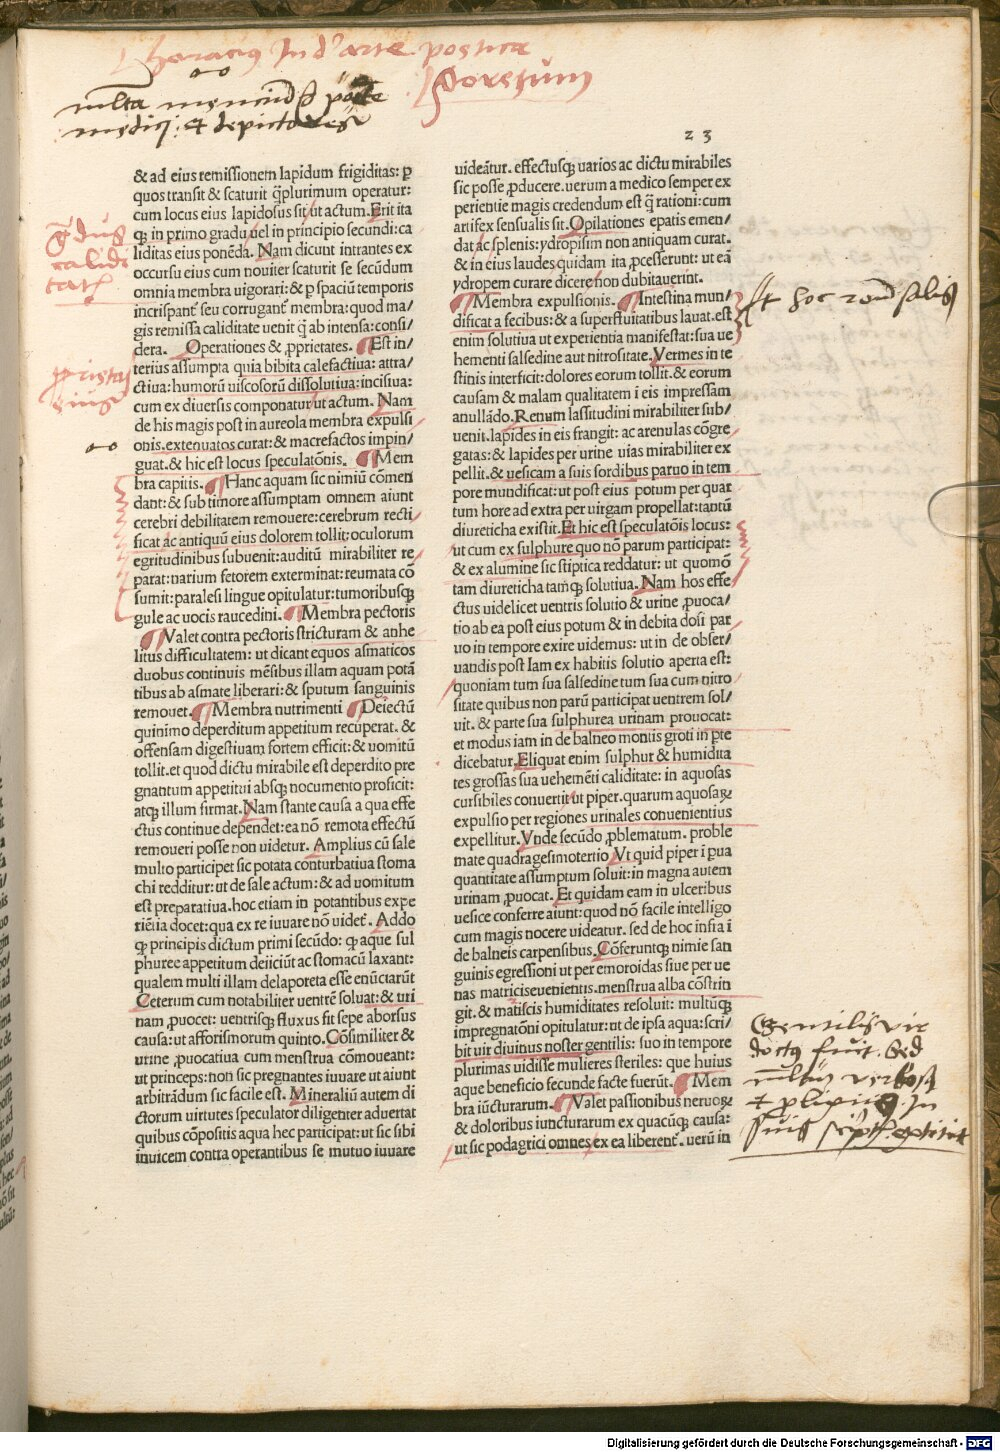 Horacius In d' arte poetica
floretum
multa menciund poete
medici: et depictores
23
& ad eius remissionem lapidum frigiditas: ꝑ
quos transit & scaturit q̃plurimum operatur:
cum locus eius lapidosus sit ut actum. Erit ita
qȝ in primo gradu uel in principio secundi: ca
liditas eius ponẽda. Nam dicunt intrantes ex
occursu eius cum nouiter scaturit se secũdum
omnia membra uigorari: & ꝑ spaciũ temporis
incrispant᷑ seu corrugant᷑ membra: quod ma/
gis remissa caliditate uenit q̃ ab intensa: consi/
dera. Operationes & ꝓprietates. Est in/
terius assumpta quia bibita calefactiua: attra/
ctiua: humorũ uiscosorũ dissolutiua: incisiua:
cum ex diuersis componatur ut actum. Nam
de his magis post in aureola membra expulsi
onis. extenuatos curat: & macrefactos impin/
guat. & hic est locus speculatõnis. Mem
bra capitis. Hanc aquam sic nimiũ cõmen
dant: & sub timore assumptam omnem aiunt
cerebri debilitatem remouere: cerebrum recti
ficat ac antiquũ eius dolorem tollit: oculorum
egritudinibus subuenit: auditũ mirabiliter re
parat: narium fetorem exterminat: reumata cõ
sumit: paralesi lingue opitulatur: tumoribusqȝ
gule ac uocis raucedini. Membra pectoris
Valet contra pectoris stricturam & anhe
litus difficultatem: ut dicant equos asmaticos
duobus continuis mẽsibus illam aquam potã
tibus ab asmate liberari: & sputum sanguinis
remouet. Membra nutrimenti Deiectũ
quinimo deperditum appetitum recuperat. &
offensam digestiuam fortem efficit: & uomitũ
tollit. et quod dictu mirabile est deperdito pre
gnantum appetitui absqȝ nocumento proficit:
atqȝ illum firmat. Nam stante causa a qua effe
ctus continue dependet: ea nõ remota effectũ
remoueri posse non uidetur. Amplius cũ sale
multo participet sic potata conturbatiua stoma
chi redditur: ut de sale actum: & ad uomitum
est preparatiua. hoc etiam in potantibus expe
riẽtia docet: qua ex re iuuare nõ uidet᷑. Addo
qȝ principis dictum primi secũdo: qȝ aque sul
phuree appetitum deiiciũt ac stomacũ laxant:
qualem multi illam delaporeta esse enũciarũt
Ceterum cum notabiliter uentrẽ soluat: & uri
nam ꝓuocet: uentrisqȝ fluxus fit sepe aborsus
causa: ut afforismorum quinto. Cõsimiliter &
urine ꝓuocatiua cum menstrua cõmoueant:
ut princeps: non sic pregnantes iuuare ut aiunt
arbitrãdum sic facile est. Mineraliũ autem di
ctorum uirtutes speculator diligenter aduertat
quibus cõpositis aqua hec participat: ut sic sibi
inuicem contra operantibus se mutuo iuuare
uideãtur. effectusqȝ uarios ac dictu mirabiles
sic posse ꝓducere. uerum a medico semper ex
perientie magis credendum est q̃ rationi: cum
artifex sensualis sit. Opilationes epatis emen/
dat ac splenis: ydropisim non antiquam curat.
& in eius laudes quidam ita ꝓcesserunt: ut eã
ydropem curare dicere non dubitauerint.
Membra expulsionis. Intestina mun/
dificat a fecibus: & a superfluitatibus lauat. est
enim solutiua ut experientia manifestat: sua ue
hementi salsedine aut nitrositate. Vermes in te
stinis interficit: dolores eorum tollit. & eorum
causam & malam qualitatem ĩ eis impressam
anullãdo. Renum lassitudini mirabiliter sub/
uenit. lapides in eis frangit: ac arenulas cõgre
gatas: & lapides per urine uias mirabiliter ex
pellit. & uesicam a suis sordibus paruo in tem
pore mundificat: ut post eius potum per quar
tum hore ad extra per uirgam propellat: tantũ
diureticha existit. Et hic est speculatõis locus:
ut cum ex sulphure quo nõ parum participat:
& ex alumine sic stiptica reddatur: ut quomõ
tam diureticha tamqȝ solutiua. Nam hos effe
ctus uidelicet uentris solutio & urine ꝓuoca/
tio ab ea post eius potum & in debita dosi par
uo in tempore exire uidemus: ut in de obser/
uandis post Iam ex habitis solutio aperta est:
quoniam tum sua salsedine tum sua cum nitro
sitate quibus non parũ participat uentrem sol/
uit. & parte sua sulphurea urinam prouocat:
et modus iam in de balneo montis groti in pte
dicebatur. Eliquat enim sulphur & humidita
tes grossas sua uehemẽti caliditate: in aquosas
cursibiles conuertit ut piper. quarum aquosaꝝ
expulsio per regiones urinales conuenientius
expellitur. Vnde secũdo ꝓblematum. proble
mate quadragesimotertio Vt quid piper ĩ ꝑua
quantitate assumptum soluit: in magna autem
urinam ꝓuocat. Et quidam eam in ulceribus
uesice conferre aiunt: quod nõ facile intelligo
cum magis nocere uideatur. sed de hoc infra ĩ
de balneis carpensibus. Cõferuntqȝ nimie san
guinis egressioni ut per emoroidas siue per ue
nas matricis euenientis. menstrua alba cõstrin
git. & matricis humiditates resoluit: multũqȝ
impregnatõni opitulatur: ut de ipsa aqua: scri/
bit uir diuinus noster gentilis: suo in tempore
plurimas uidisse mulieres steriles: que huius
aque beneficio fecunde facte fuerũt. Mem
bra iũcturarum. Valet passionibus neruoꝝ
& doloribus iuncturarum ex quacũqȝ causa:
ut sic podagrici omnes ex ea liberent᷑. uerũ in
Gradus
calidi
tatis
Et hoc rõne salis
Gentilis vir
doctus fuit. Sed
multum verbosus
et prolixius In
suis scriptis extitit
Digitalisierung gefördert durch die Deutsche Forschungsgemeinschaft - DFG